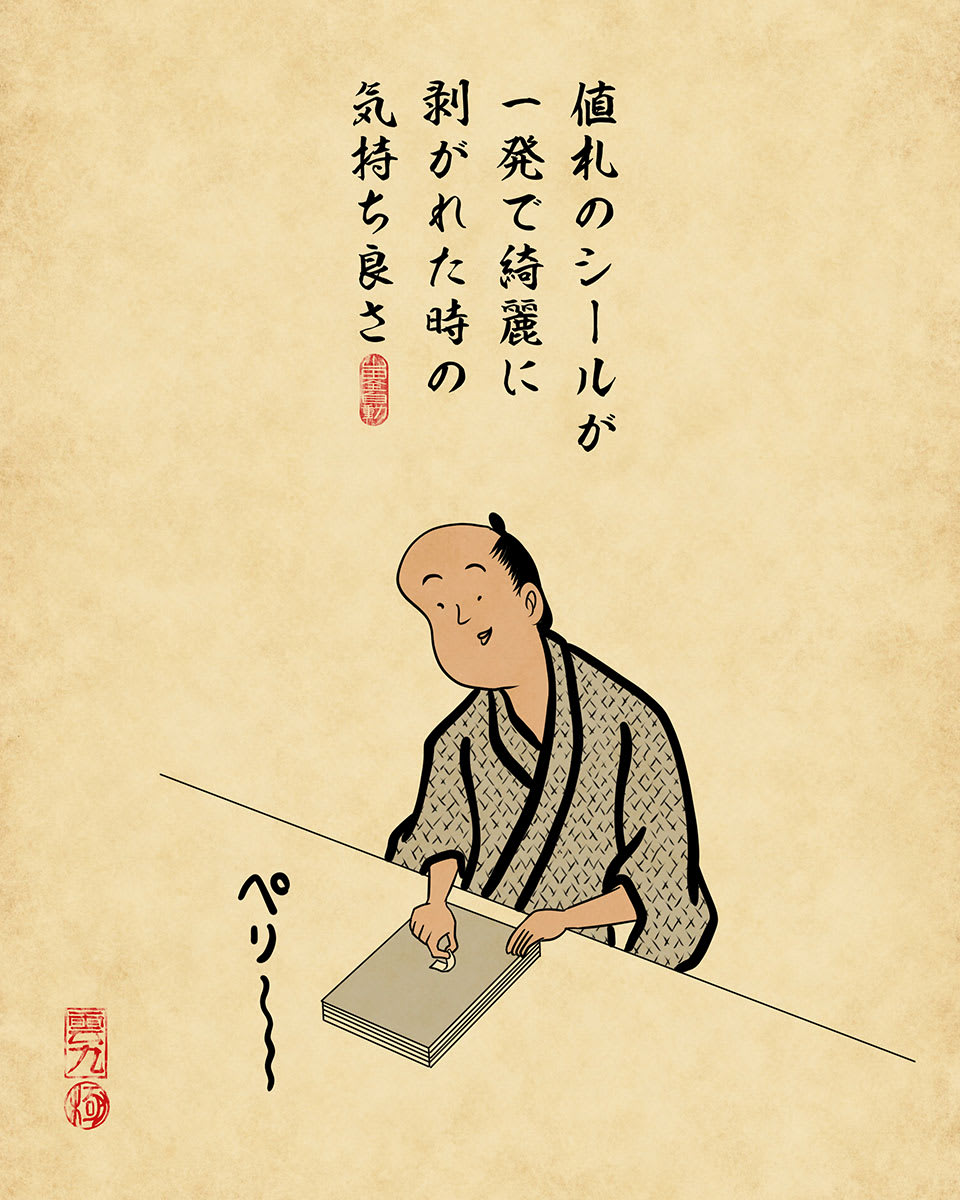 値札のシールが
一発で綺麗に
剥がれた時の
気持ち良さ
ペリ〜